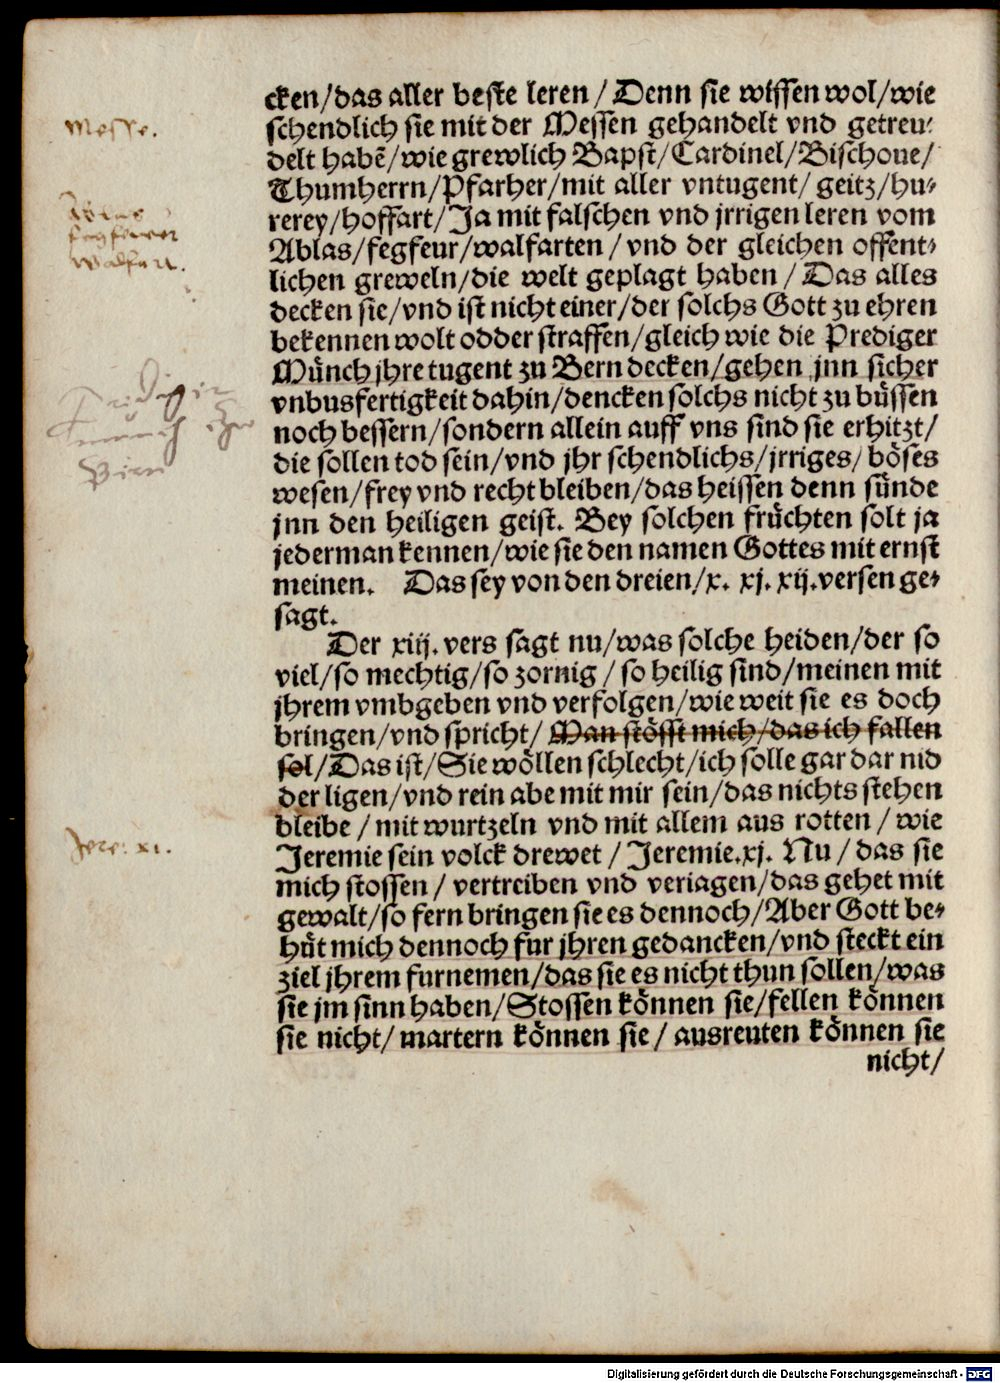 cken/das aller beste leren / Denn sie wissen wol/wie
Messe.
schendlich sie mit der Messen gehandelt vnd getreu⸗
delt habẽ/wie grewlich Bapst/Cardinel/Bischoue/
Thumherrn/Pfarher/mit aller vntugent/ geitz/hu⸗
Ablas
rerey/hoffart/Ja mit falschen vnd jrrigen leren vom
fegfewer
Ablas/fegfeur/walfarten / vnd der gleichen offent⸗
Walfart.
lichen greweln/die welt geplagt haben / Das alles
decken sie/vnd ist nicht einer/der solchs Gott zu ehren
bekennen wolt odder straffen/gleich wie die Prediger
Münch jhre tugent zu Bern decken/gehen jnn sicher
vnbusfertigkeit dahin/dencken solchs nicht zu büssen
noch bessern/sondern allein auff vns sind sie erhitzt/
die sollen tod sein/vnd jhr schendlichs/jrriges/ böses
wesen/frey vnd recht bleiben/das heissen denn sünde
jnn den heiligen geist. Bey solchen früchten solt ja
jederman kennen/wie sie den namen Gottes mit ernst
meinen. Das sey von den dreien/x. xj. xij.versen ge⸗
sagt.
Der xiij. vers sagt nu/was solche heiden/der so
viel/so mechtig/so zornig / so heilig sind/meinen mit
jhrem vmbgeben vnd verfolgen/wie weit sie es doch
bringen/vnd spricht/ Man stösst mich/das ich fallen
sol/Das ist/Sie wöllen schlecht/ich solle gar dar nid
der ligen/vnd rein abe mit mir sein/das nichts stehen
bleibe / mit wurtzeln vnd mit allem aus rotten / wie
Jere. xi.
Jeremie sein volck drewet / Jeremie.xj. Nu / das sie
mich stossen / vertreiben vnd veriagen/das gehet mit
gewalt/so fern bringen sie es dennoch/Aber Gott be⸗
hüt mich dennoch fur jhren gedancken/vnd steckt ein
ziel jhrem furnemen/das sie es nicht thun sollen/was
sie jm sinn haben/Stossen können sie/fellen können
sie nicht/ martern können sie / ausreuten können sie
nicht/
Digitalisierung gefördert durch die Deutsche Forschungsgemeinschaft - DFG